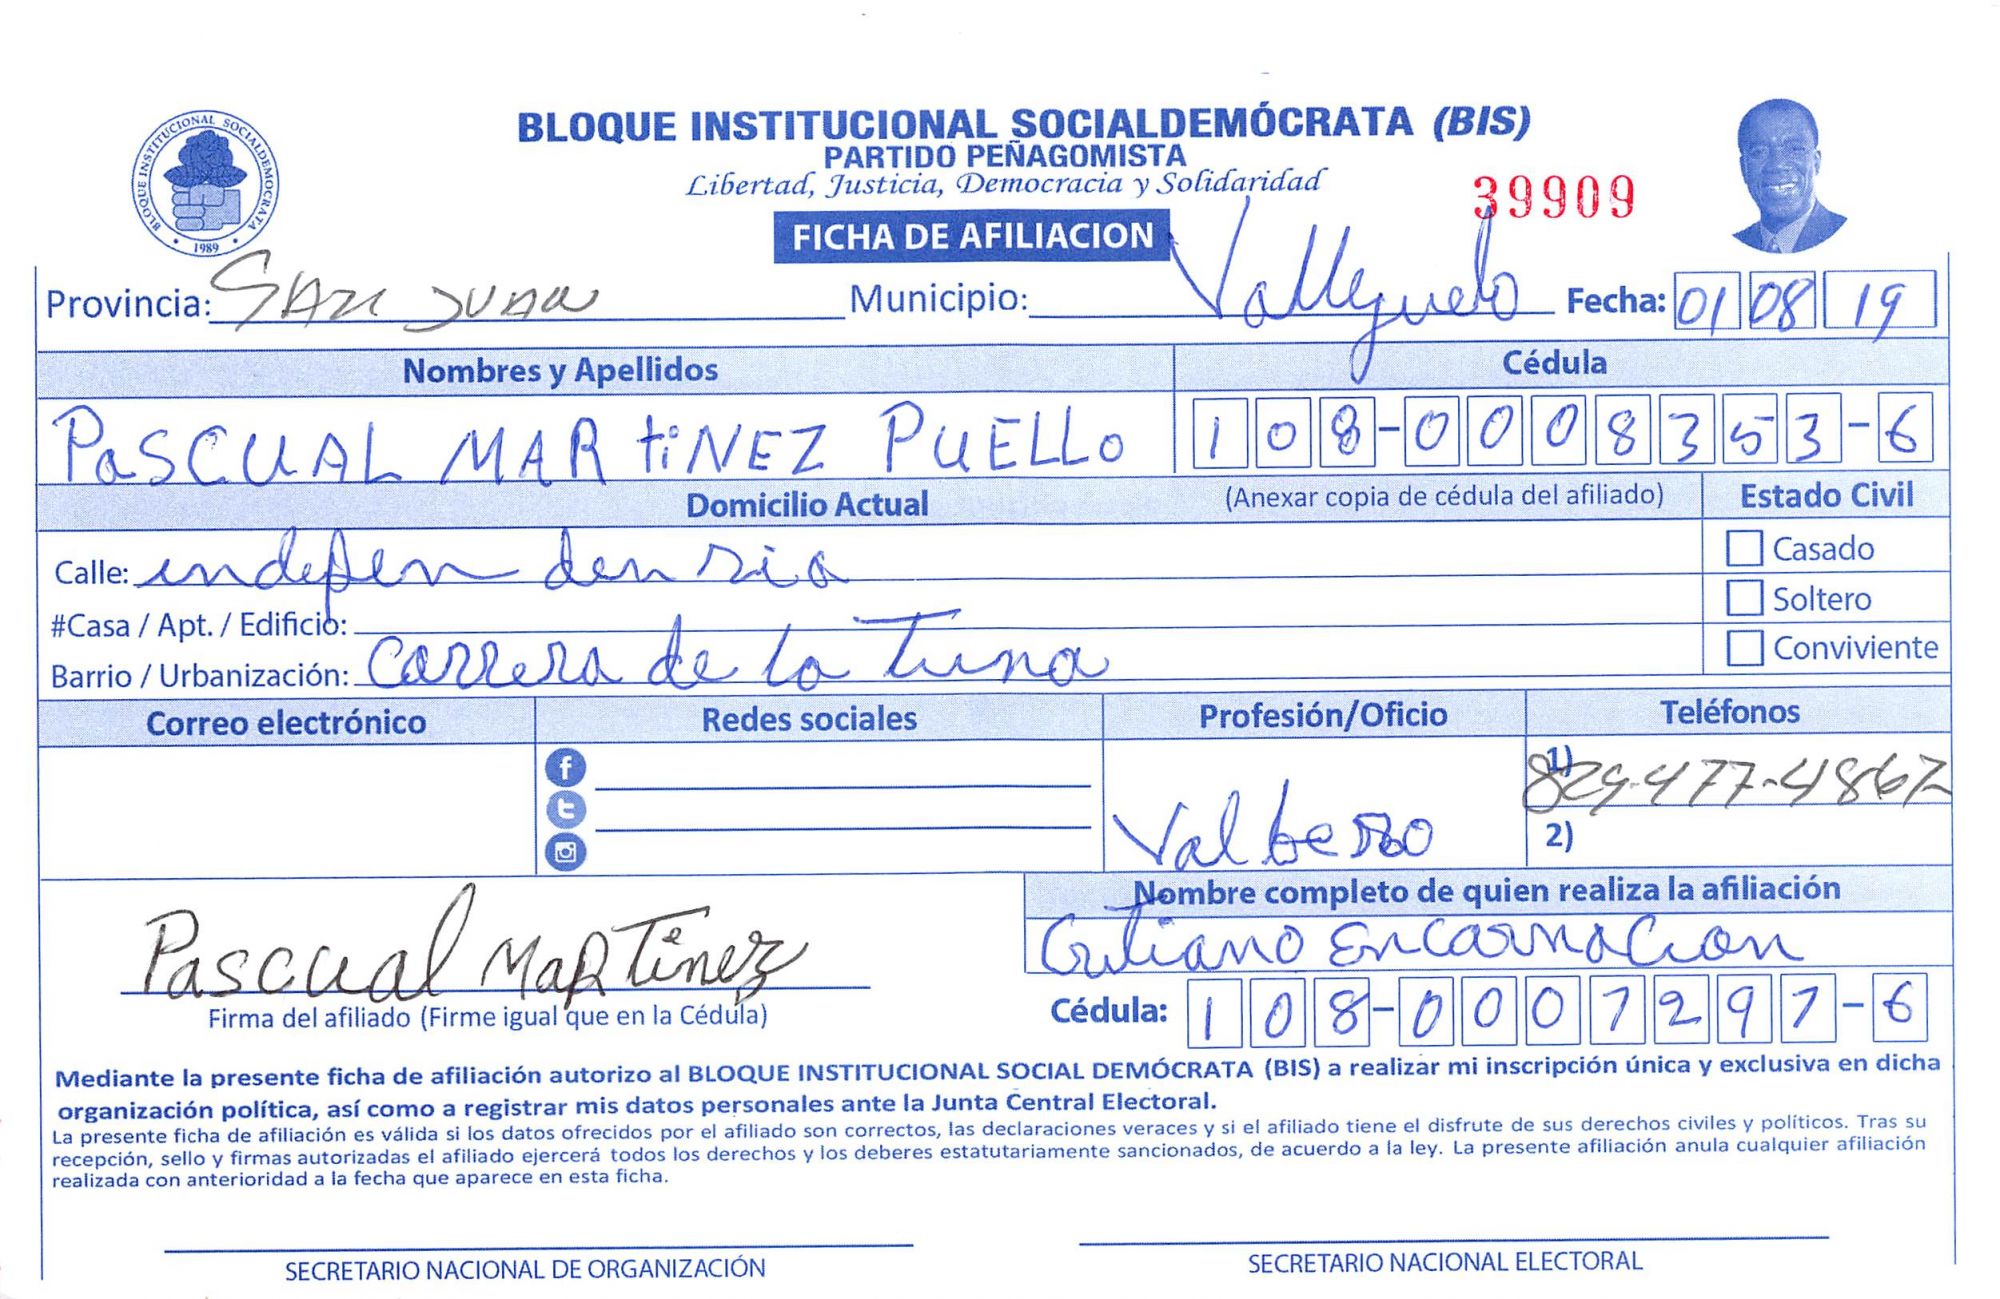 BLOQUE INSTITUCIONAL SOCIALDEMOCRATA
1989
BLOQUE INSTITUCIONAL SOCIALDEMÓCRATA (BIS)
PARTIDO PEÑAGOMISTA
Libertad, Justicia, Democracia y Solidaridad
39909
FICHA DE AFILIACION
Provincia: SAN JUAN Municipio: Valleguelo Fecha: 01 08 19
Nombres y Apellidos Cédula
PaSCUAL MARtiNEZ PUELLo 108-0008353-6
Domicilio Actual (Anexar copia de cédula del afiliado) Estado Civil
Calle: indepen densia Casado
#Casa / Apt. / Edificio: Soltero
Barrio / Urbanización: Carrera de la Tuna Conviviente
Correo electrónico Redes sociales Profesión/Oficio Teléfonos
1) 829-477-4867
Valbero 2)
Nombre completo de quien realiza la afiliación
Encarnacion
Pascual MARTinez
Firma del afiliado (Firme igual que en la Cédula) Cédula: 108-0007297-6
Mediante la presente ficha de afiliación autorizo al BLOQUE INSTITUCIONAL SOCIAL DEMÓCRATA (BIS) a realizar mi inscripción única y exclusiva en dicha
organización política, así como a registrar mis datos personales ante la Junta Central Electoral.
La presente ficha de afiliación es válida si los datos ofrecidos por el afiliado son correctos, las declaraciones veraces y si el afiliado tiene el disfrute de sus derechos civiles y políticos. Tras su
recepción, sello y firmas autorizadas el afiliado ejercerá todos los derechos y los deberes estatutariamente sancionados, de acuerdo a la ley. La presente afiliación anula cualquier afiliación
realizada con anterioridad a la fecha que aparece en esta ficha.
SECRETARIO NACIONAL DE ORGANIZACIÓN SECRETARIO NACIONAL ELECTORAL